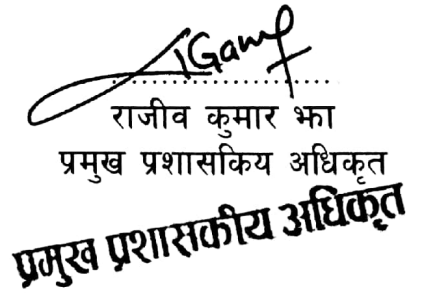 राजीव कुमार झा
प्रमुख प्रशासकिय अधिकृत
प्रमुख प्रशासकीय अधिकृत